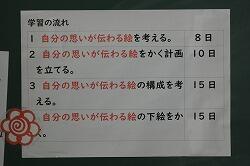 学習の流れ
1 自分の思いが伝わる絵を考える。 8日
2 自分の思いが伝わる絵をかく計画 10日
を立てる。
3 自分の思いが伝わる絵の構成を考 15日
える。
自分の思いが伝わる絵の下絵をか 15日
く。